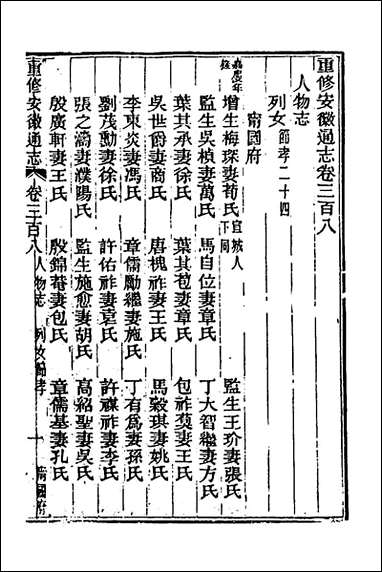 重修安徽通志卷三百八
人物志
列女 節孝二十四
甯國府
嘉慶年
增生梅琛妻荀氏 宣城人下同
監生王玠妻張氏
監生吳楨妻萬氏 馬自位妻章氏 丁大智繼妻方氏
葉其承妻徐氏 葉其苞妻章氏 包祚蓂妻王氏
吳世爵妻商氏 唐槐祚妻王氏 馬毅琪妻姚氏
李東炎妻馮氏 章儒勵繼妻施氏 丁有為妻孫氏
劉茂勳妻徐氏 許佑祚妻袁氏 許禖祚妻李氏
張之瀚妻濮陽氏 監生施愈妻胡氏 高紹聖妻吳氏
殷廣軒妻王氏 殷錦菴妻包氏 章儒基妻孔氏
重修安徽通志 卷三百八 人物志 列女節孝 一 甯國府